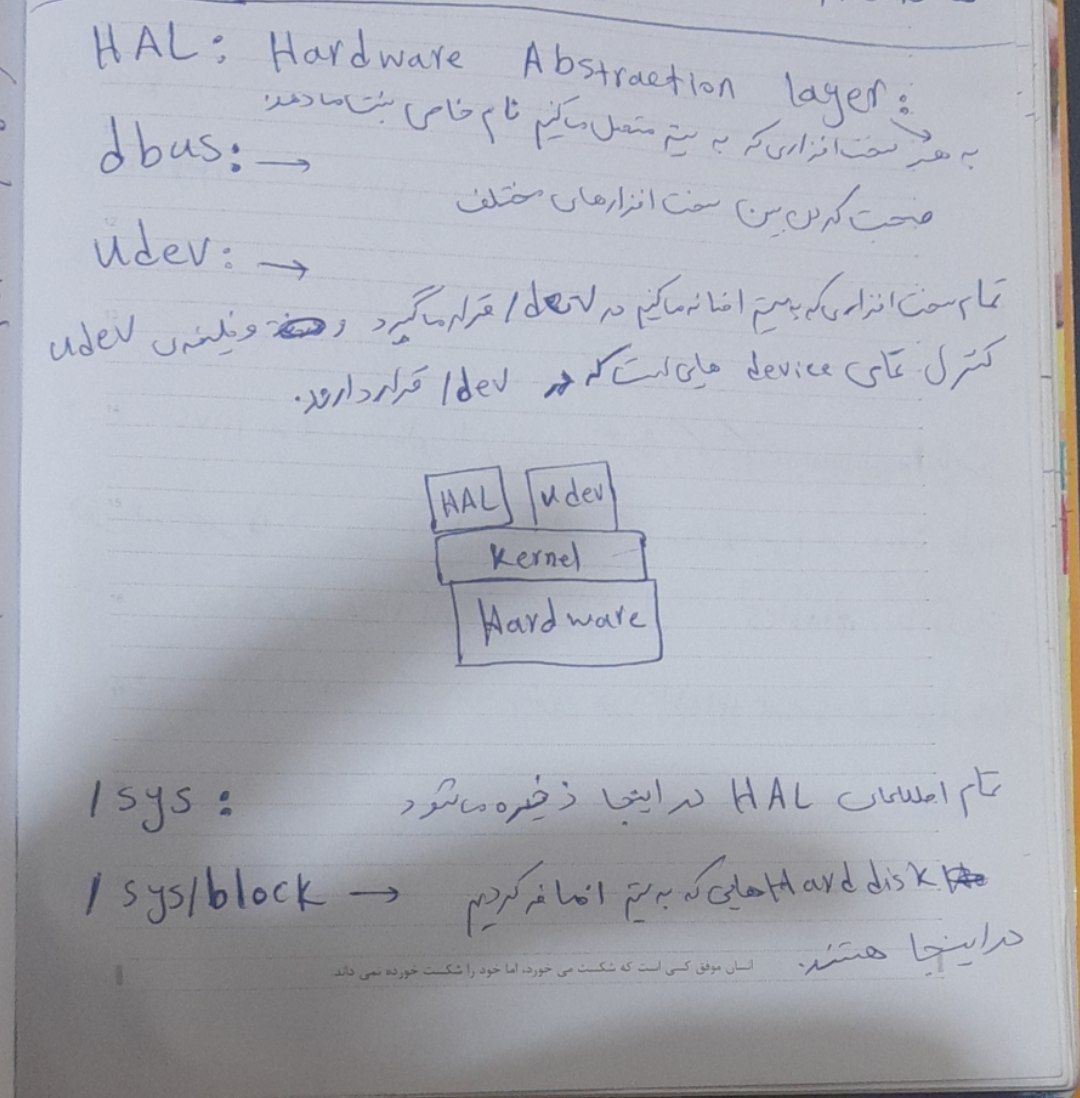 HAL: Hardware Abstraction layer:
به هر سخت افزاری که به سیستم متصل میکنیم نام خاصی نسبت میدهد.
dbus: →
صحبت کردن بین سخت افزارهای مختلف
udev: →
تمام سخت افزاری که به سیستم اضافه میکنیم در /dev قرار میگیرد و وظیفه‌ی udev
کنترل تمامی device هایی است که در /dev قرار دارند.
HAL udev
Kernel
Hardware
/sys : تمام اطلاعات HAL در اینجا ذخیره میشود
/sys/block → Hard disk هایی که به سیستم اضافه کردیم
در اینجا هستند.
انسان موفق کسی است که شکست می خورد، اما خود را شکست خورده نمی داند